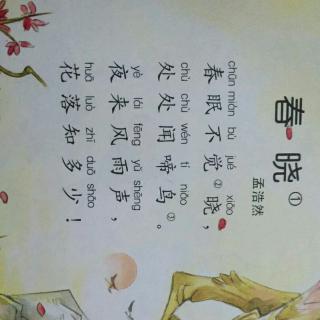 春晓①
孟浩然
chūn mián bù jué xiǎo
春眠不觉②晓，
chù chù wén tí niǎo
处处闻啼鸟③。
yè lái fēng yǔ shēng
夜来风雨声，
huā luò zhī duō shǎo
花落知多少！